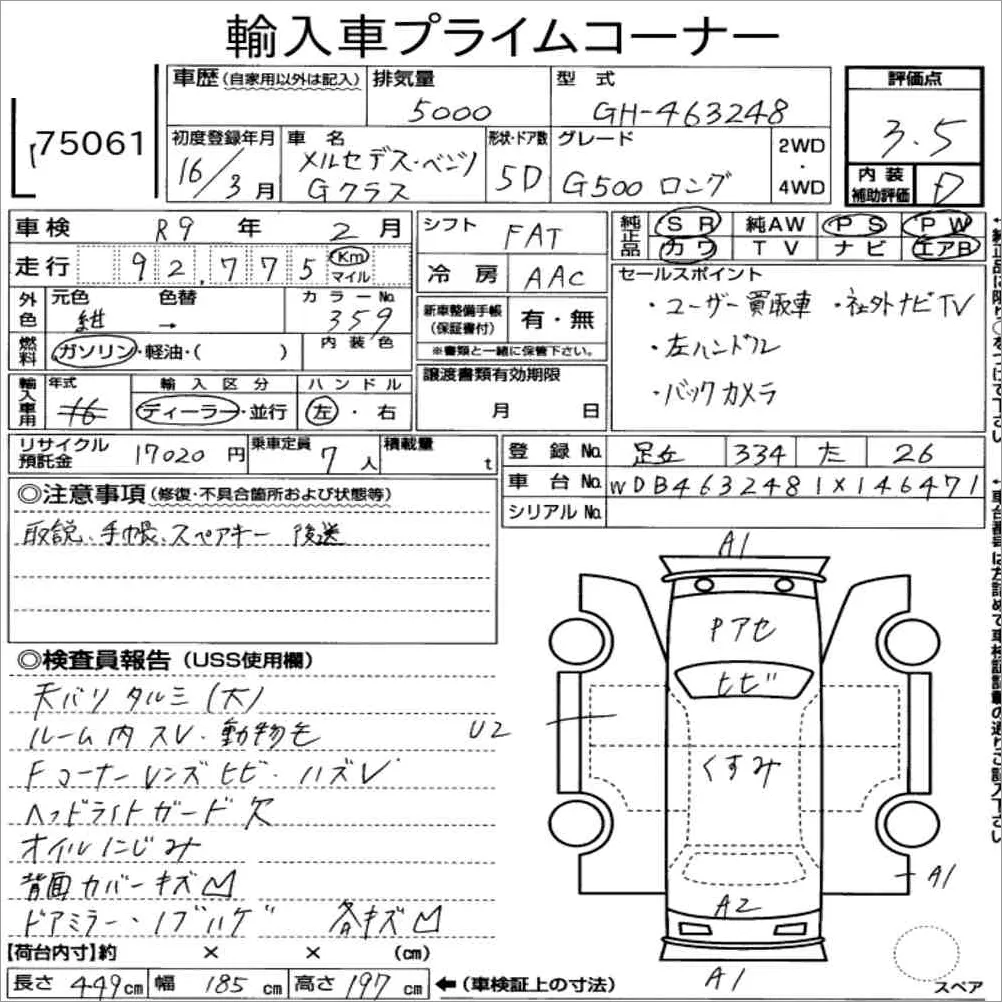 輸入車プライムコーナー
75061
車歴(自家用以外は記入) 排気量 5000 型式 GH-463248 評価点 3.5
初度登録年月 16/3月 車名 メルセデス・ベンツ Gクラス 形状・ドア数 5D グレード G500 ロング 2WD・4WD 内装補助評価 D
車検 R9年 2月 シフト FAT 純正品 SR 純AW PS PW
走行 92,775 Km マイル 冷房 AAC カワ TV ナビ エアB
外色 元色 紺 色替 → カラーNo. 359 新車整備手帳(保証書付) 有・無 セールスポイント
・ユーザー買取車 ・社外ナビTV
・左ハンドル
・バックカメラ
燃料 ガソリン・軽油・( ) 内装色 ※書類と一緒に保管下さい。
輸入車用 年式 16 輸入区分 ディーラー・並行 ハンドル 左・右 譲渡書類有効期限 月 日
リサイクル預託金 17020円 乗車定員 7人 積載量 t 登録No. 足立 334 た 26
車台No. WDB4632481X146471
シリアルNo.
◎注意事項(修復・不具合箇所および状態等)
取説、手帳、スペアキー 後送
◎検査員報告(USS使用欄)
天バリタルミ(大)
ルーム内スレ・動物毛
Fコーナーレンズヒビ・ハズレ
ヘッドライトガード欠
オイルにじみ
背面カバーキズ凹
ドアミラー・ノブハゲ 各キズ凹
A1
Pアセ
ヒビ
U2
くすみ
A1
A2
A1
スペア
【荷台内寸】約 × × (cm)
長さ 449cm 幅 185cm 高さ 197cm ←(車検証上の寸法)